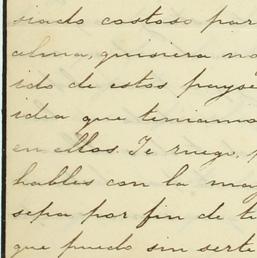 siado costoso par
alma, quisiera no
ido de estos payse
idea que teniamo
en ellos. Te ruego,
hables con la may
sepa por fin de tu
que puedo sin serte